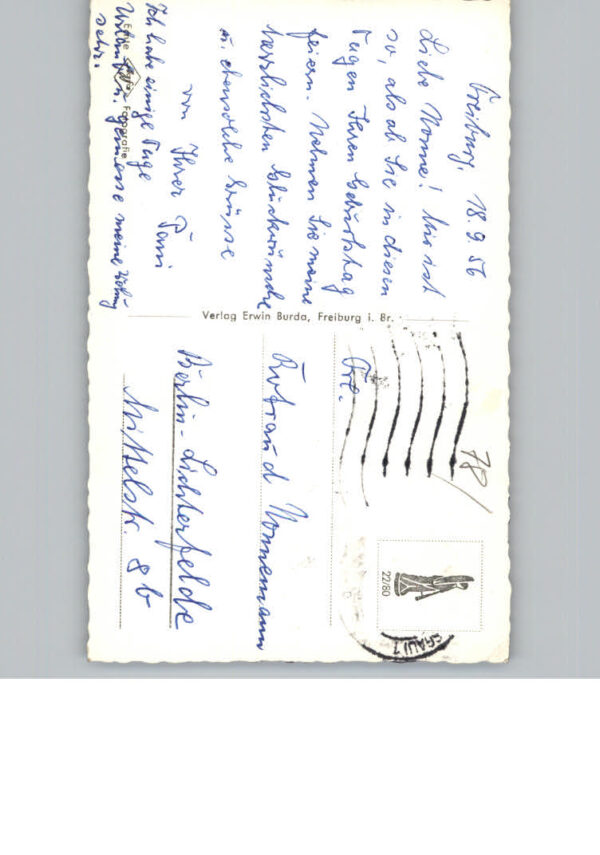 Freiburg, 18.9.56
Liebe Nonne! Mir ist
so, als ob Sie in diesen
Tagen Ihren Geburtstag
feiern. Nehmen Sie meine
herzlichsten Glückwünsche
u. ebensolche Grüsse
von Ihrer
Ich habe einige Tage
Urlaub u. geniesse meine
sehr.
Echte Fotografie
Verlag Erwin Burda, Freiburg i. Br.
Frl.
Rotraud Nonnemann
Berlin-Lichterfelde
Mittelstr. 8b
78
22/80